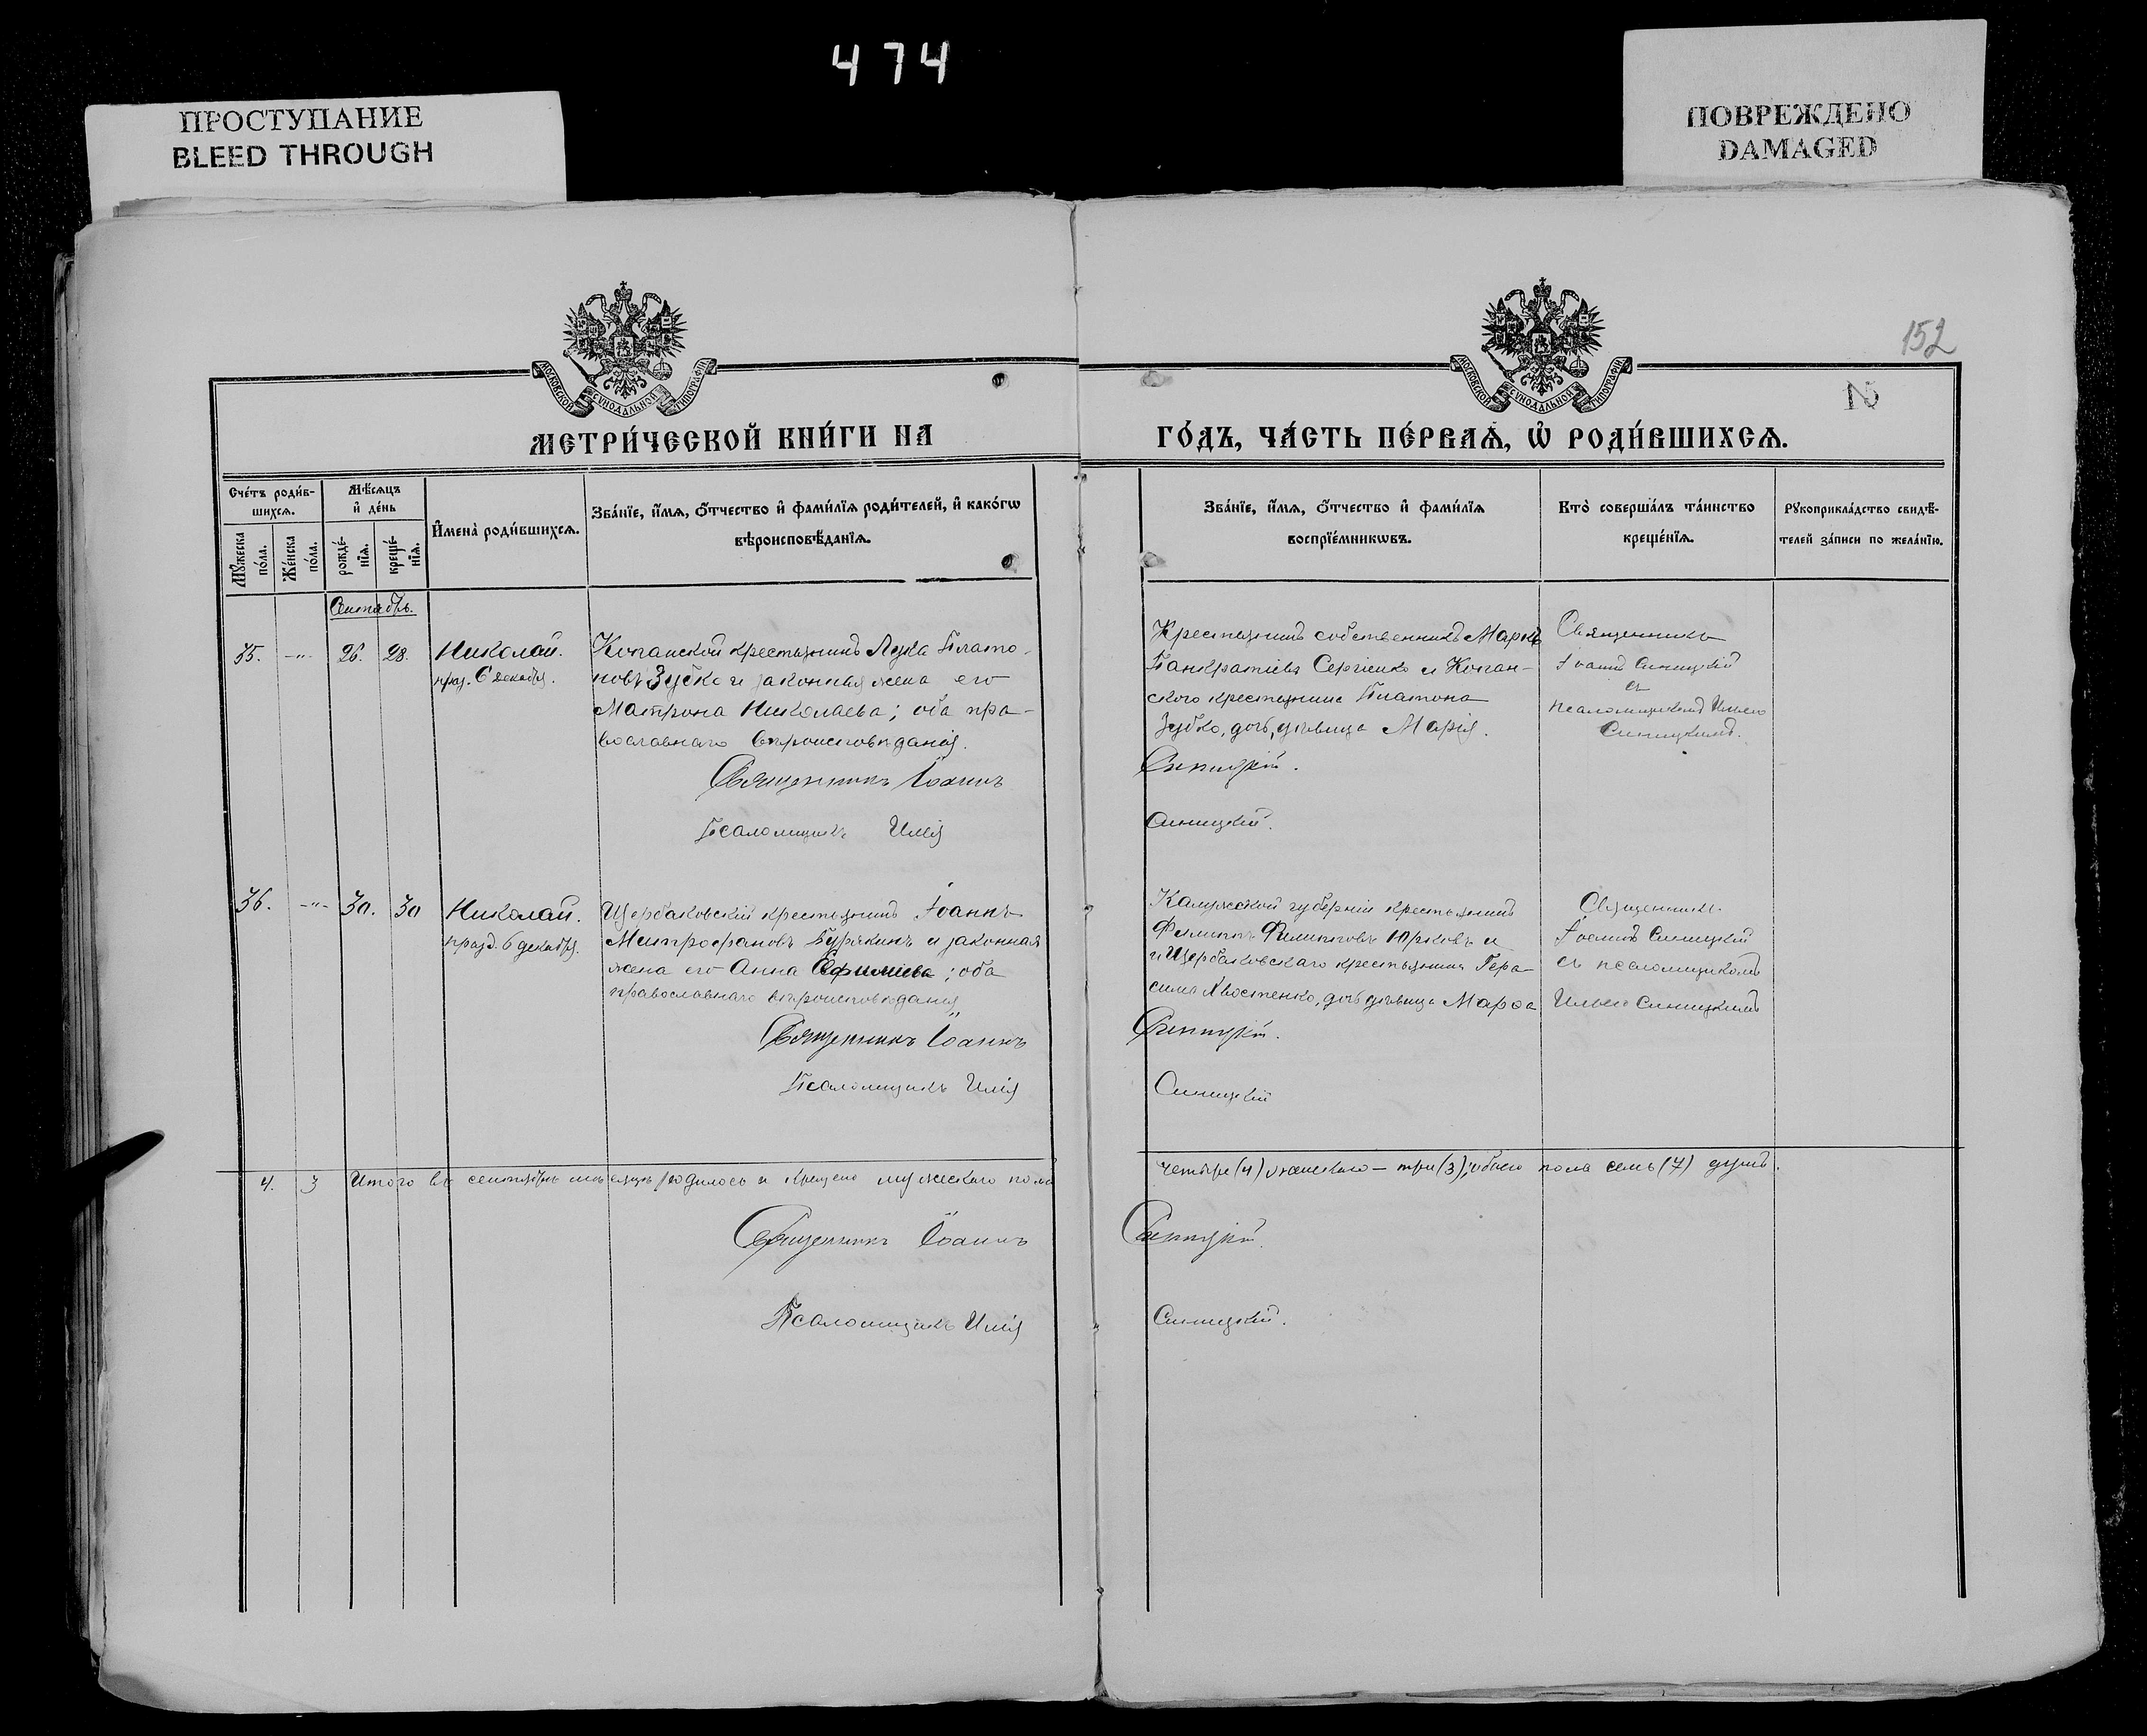 474
ПРОСТУПАНИЕ
BLEED THROUGH
ПОВРЕЖДЕНО
DAMAGED
152
МОСКОВСКОЙ СѴНОДАЛЬНОЙ ТИПОГРАФІИ
МОСКОВСКОЙ СѴНОДАЛЬНОЙ ТИПОГРАФІИ
МЕТРИ́ЧЕСКОЙ КНИ́ГИ НА
ГО́ДЪ, ЧА́СТЬ ПЕ́РВАѦ, Ѡ҆ РОДИ́ВШИХСѦ.
Сче́тъ роди́в-
шихсѧ.
Мѣ́сѧцъ
и҆ де́нь
И҆мена̀ роди́вшихсѧ.
Зва́нїе, и҆́мѧ, ѻ҆́тчество и҆ фами́лїѧ роди́телей, и҆ како́гѡ
вѣроисповѣ́данїѧ.
Мꙋ́жеска
по́ла.
Же́нска
по́ла.
рожде́-
нїѧ.
креще́-
нїѧ.
Зва́нїе, и҆́мѧ, ѻ҆́тчество и҆ фами́лїѧ
воспрїе́мникѡвъ.
Кто̀ соверша́лъ та́инство
креще́нїѧ.
Рꙋкоприкла́дство свидѣ́-
телей за́писи по жела́нїю.
Сентябрь.
35. -"- 26. 28. Николай.
праз. 6 декабря.
Копанской крестьянинъ Лука Плато-
новъ Зубко и законная жена его
Матрона Николаева; оба пра-
вославнаго вѣроисповѣданія.
Священникъ Іоаннъ
Псаломщикъ Илія
Крестьянинъ собственникъ Маркъ
Панкратіевъ Сергіенко и Копан-
ского крестьянина Платона
Зубко, дочь, дѣвица Марія.
Синицкій.
Синицкій.
Священникъ
Іоаннъ Синицкій
съ
псаломщикомъ Ильею
Синицкимъ.
36. -"- 30. 30 Николай.
празд. 6 декабря.
Щербаковскій крестьянинъ Іоаннъ
Митрофановъ Бурякинъ и законная
жена его Анна Ефиміева; оба
православнаго вѣроисповѣданія
Священникъ Іоаннъ
Псаломщикъ Илія
Калужской губерніи крестьянинъ
Филиппъ Филипповъ Юрковъ и
и Щербаковскаго крестьянина Гера-
сима Хвостенко, дочь дѣвица Марѳа
Синицкій.
Синицкій
Священникъ
Іоаннъ Синицкій
съ псаломщикомъ
Ильею Синицкимъ
4. 3 Итого въ сентябрѣ мѣсяцѣ родилось и крещено мужескаго пола
четыре (4) женскаго – три (3), обоего пола семь (7) душъ.
Священникъ Іоаннъ
Синицкій.
Псаломщикъ Илія
Синицкій.